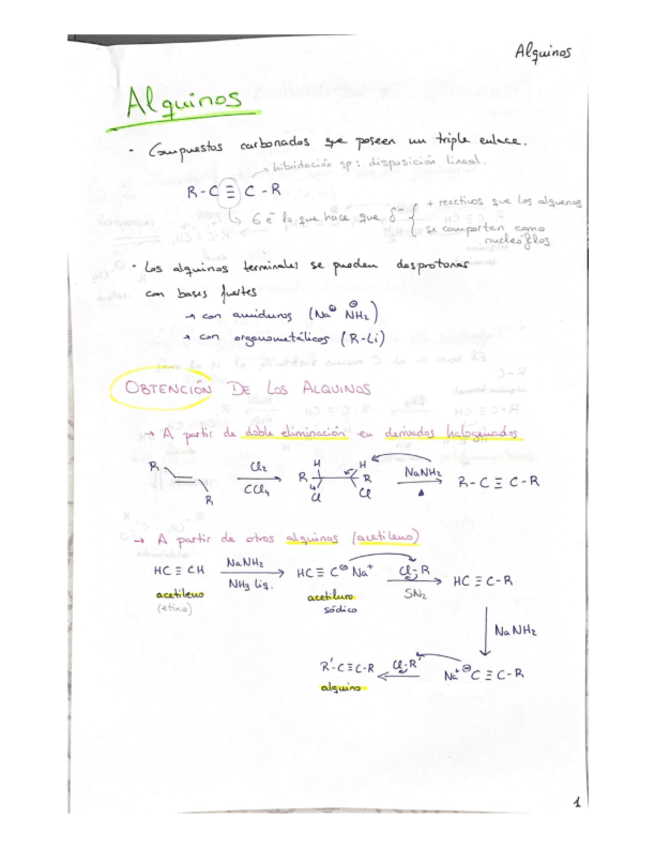 Alquinos
Alquinos
· Compuestos carbonados que poseen un triple enlace.
→ hibridación sp: disposición lineal.
R-C≡C-R
↳ 6 e⁻ lo que hace que δ⁻ { + reactivos que los alquenos
se comportan como nucleófilos
· Los alquinos terminales se pueden desprotonar
con bases fuertes
→ con amiduros (Na⊕ NH₂⊖)
→ con organometálicos (R-Li)
OBTENCIÓN DE LOS ALQUINOS
→ A partir de doble eliminación en derivados halogenados
R R Cl₂ CCl₄ R H Cl H R Cl NaNH₂ Δ R-C≡C-R
→ A partir de otros alquinos (acetileno)
HC≡CH NaNH₂ NH₃ liq. HC≡C⊖ Na⁺ Cl-R SN₂ HC≡C-R
acetileno acetiluro
(etino) sódico
NaNH₂
R'-C≡C-R Cl-R' Na⁺ ⊖C≡C-R
alquino
1